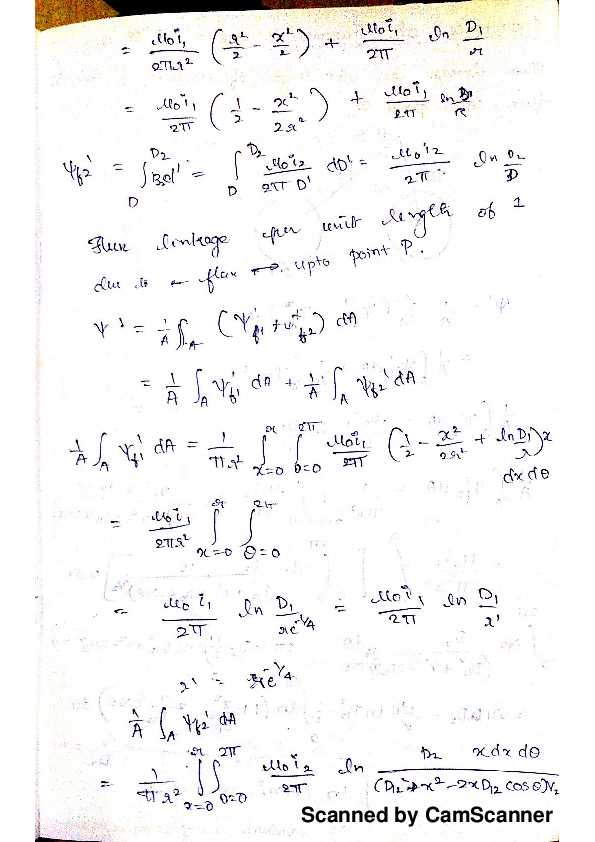 = μ₀i₁/2πr² (r²/2 − x²/2) + μ₀i₁/2π ln D₁/r
= μ₀i₁/2π (1/2 − x²/2r²) + μ₀i₁/2π ln D₁/r
Ψf2' = ∫_D^D₂ B₂d' = ∫_D^D₂ μ₀i₂/2πD' dD' = μ₀i₂/2π ln D₂/D
Flux linkage per unit length of 1
due to flux upto point P.
Ψ' = 1/A ∫_A (Ψf1' + Ψf2') dA
= 1/A ∫_A Ψf1' dA + 1/A ∫_A Ψf2' dA
1/A ∫_A Ψf1' dA = 1/πr² ∫_{x=0}^{r} ∫_{θ=0}^{2π} μ₀i₁/2π (1/2 − x²/2r² + ln D₁/r) x dx dθ
= μ₀i₁/2πr² ∫_{x=0}^{r} ∫_{θ=0}^{2π}
= μ₀i₁/2π ln D₁/re^{-1/4} = μ₀i₁/2π ln D₁/r'
r' = re^{-1/4}
1/A ∫_A Ψf2' dA
= 1/πr² ∫_{x=0}^{r} ∫_{θ=0}^{2π} μ₀i₂/2π ln D₂ x dx dθ/(D₁₂² + x² − 2xD₁₂ cosθ)^{1/2}
Scanned by CamScanner